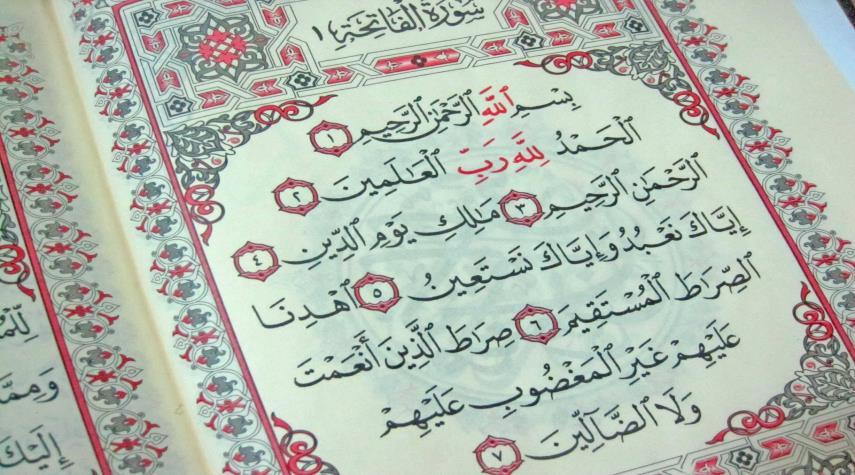 سُورَةُ ٱلْفَاتِحَةِ ١
بِسْمِ ٱللَّهِ ٱلرَّحْمَٰنِ ٱلرَّحِيمِ ١
ٱلْحَمْدُ لِلَّهِ رَبِّ ٱلْعَٰلَمِينَ ٢
ٱلرَّحْمَٰنِ ٱلرَّحِيمِ ٣ مَٰلِكِ يَوْمِ ٱلدِّينِ ٤
إِيَّاكَ نَعْبُدُ وَإِيَّاكَ نَسْتَعِينُ ٥ ٱهْدِنَا
ٱلصِّرَاطَ ٱلْمُسْتَقِيمَ ٦ صِرَاطَ ٱلَّذِينَ أَنْعَمْتَ
عَلَيْهِمْ غَيْرِ ٱلْمَغْضُوبِ عَلَيْهِمْ
وَلَا ٱلضَّآلِّينَ ٧
إِلَيْكَ